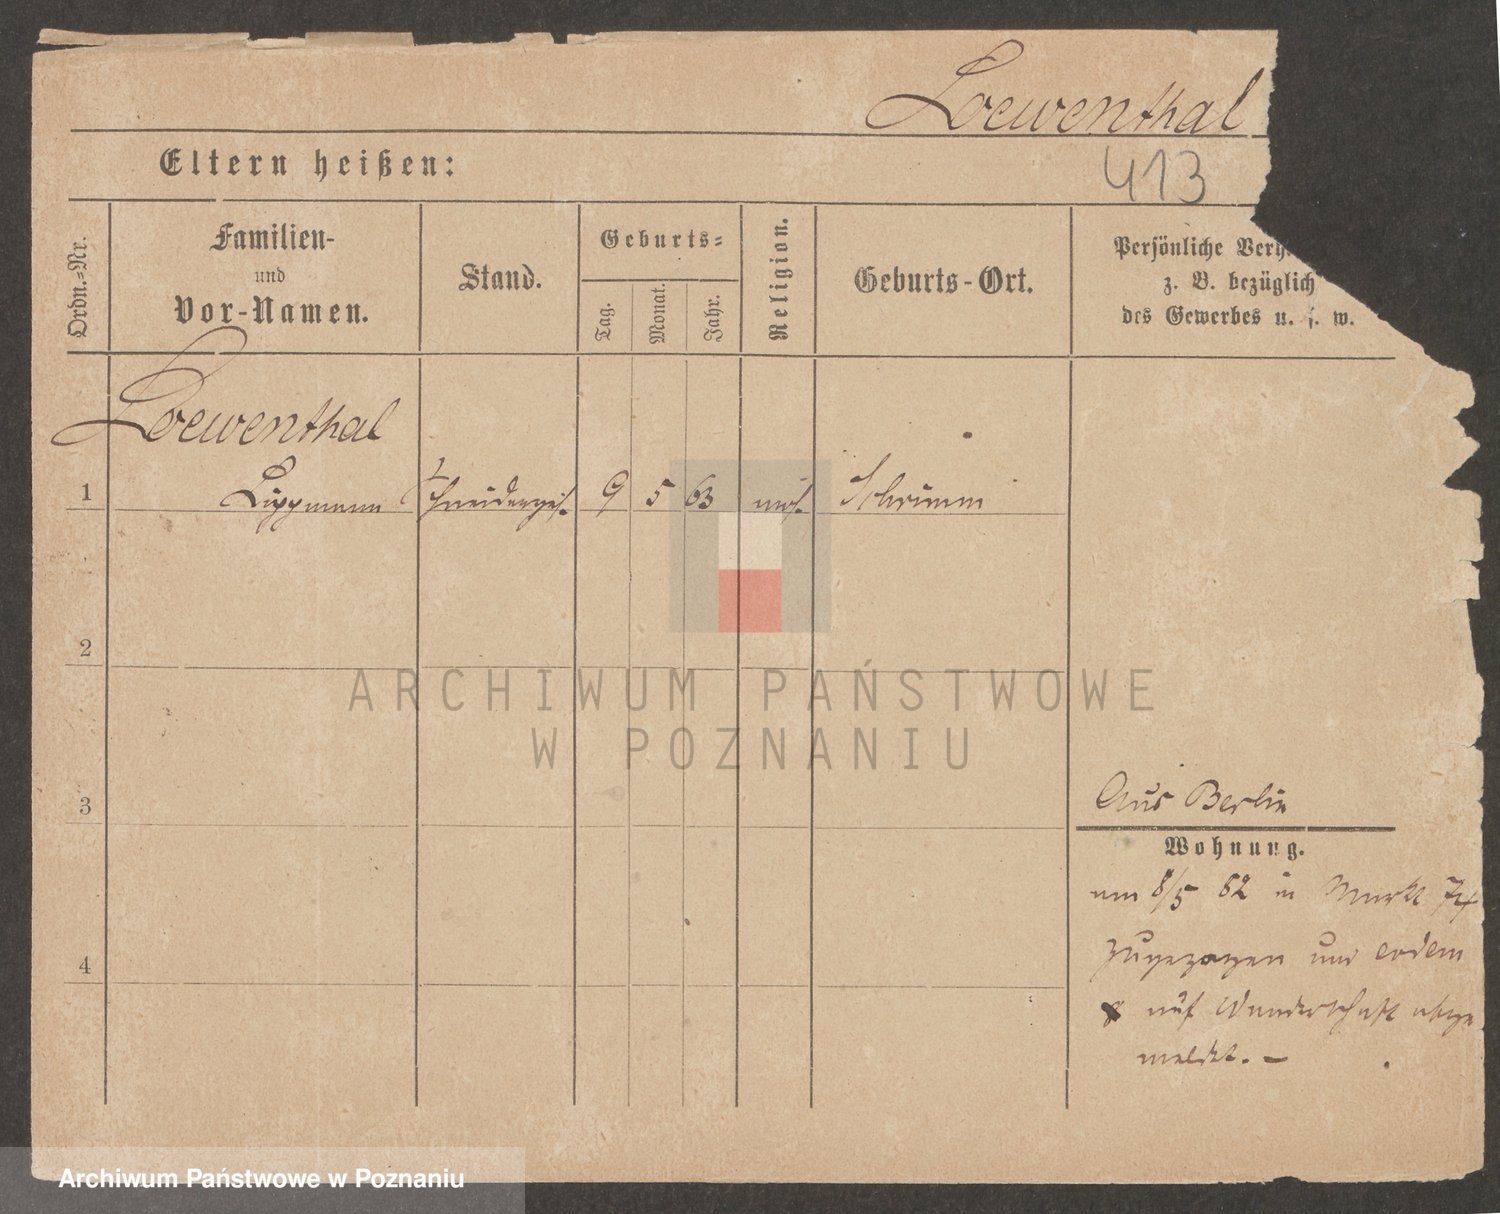 Loewenthal
Eltern heißen:
413
Ordn.=Nr.
Familien-
und
Vor-Namen.
Stand.
Geburts=
Tag.
Monat.
Jahr.
Religion.
Geburts-Ort.
Persönliche Verh
z. B. bezüglich
des Gewerbes u. s. w.
Loewenthal
1 Lippmann Schneiderges. 9 5 63 mos. Schrimm
2
ARCHIWUM PAŃSTWOWE
W POZNANIU
3
Aus Berlin
Wohnung.
am 8/5 82 in Markt 74
zugezogen und
4
auf Wanderschaft abge
meldet. –
Archiwum Państwowe w Poznaniu